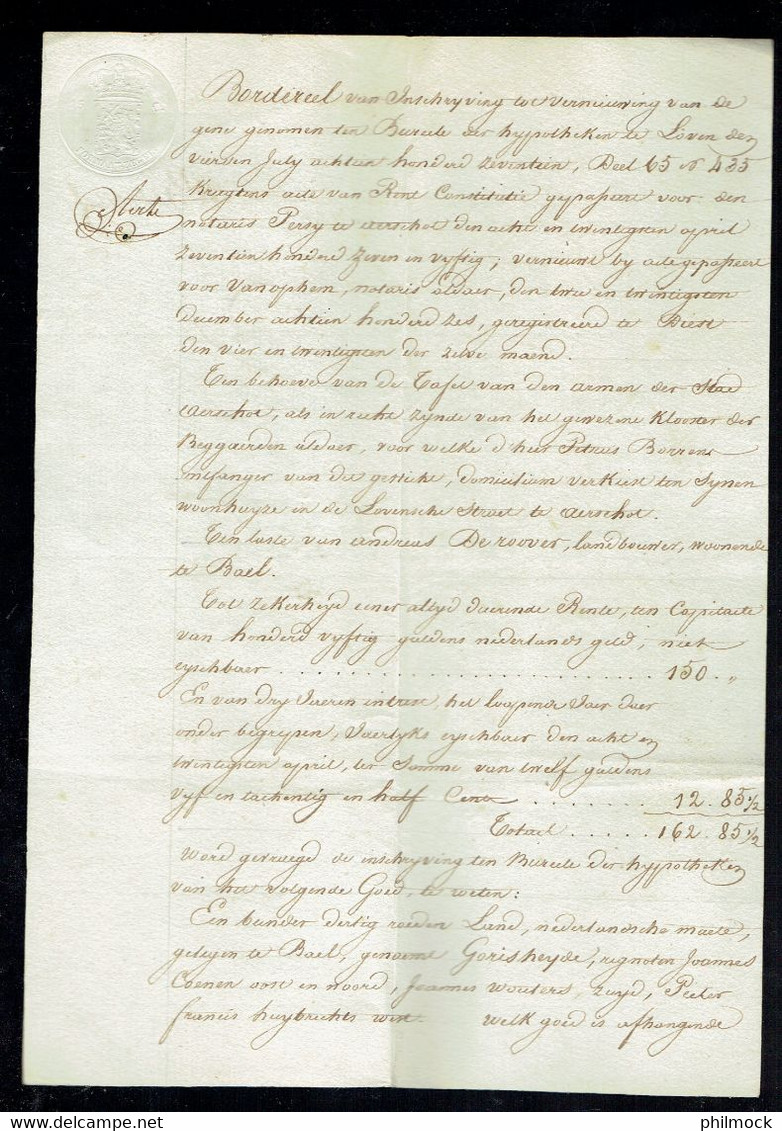 Bordereel van Inschryving tot vernieuwing van de
gene genomen ten Bureele der hypotheken te Loven den
vierden July achtien honderd zeventien, Deel 65 N° 435
Kragtens acte van Rent Constitutie gepasseert voor den
Sterte
notaris Persy te aerschot den acht en twintigsten april
zeventien honderd zeven en vyftig, vernieuwt by acte gepasseert
voor Vanophem, notaris aldaer, den twee en twintigsten
december achtien honderd zes, geregistreerd te Diest
den vier en twintigsten der zelve maend.
Ten behoeve van de Tafel van den armen der Stad
Aerschot, als in recht zynde van het gewezene Klooster der
Beggaerden aldaer, voor welke d'heer Petrus Borrens
ontfanger van dit gesticht, domicilium verkiest ten synen
woonhuyze in de Lovensche Straet te aerschot.
Ten laste van andreas De roover, landbouwer, woonende
te Bael.
Tot zekerheyd eener altyd duerende Rente, ten Capitaele
van honderd vyftig guldens nederlands geld, niet
eyschbaer . . . . . . . . . . . . . . . . . . . . . . . . . . . . 150 . „
En van dry Jaeren intrest, het loopende Jaer daer
onder begrepen, Jaerlyks eyschbaer den acht en
twintigsten april, ter Somme van twelf guldens
vyf en tachentig en half Cents . . . . . . . . 12 . 85 1/2
Totael . . . . . 162 . 85 1/2
Word gevraegd de inschryving ten Bureele der hypotheken
van het volgende Goed, te weten:
Een bunder dertig roeden Land, nederlandsche maete,
gelegen te Bael, genoemt Gorisheyde, regnoten Joannes
Coenen oost en noord, Joannes Wouters, zuyd, Peeter
francis huybrechts west. Welk goed is afhangende
philmock